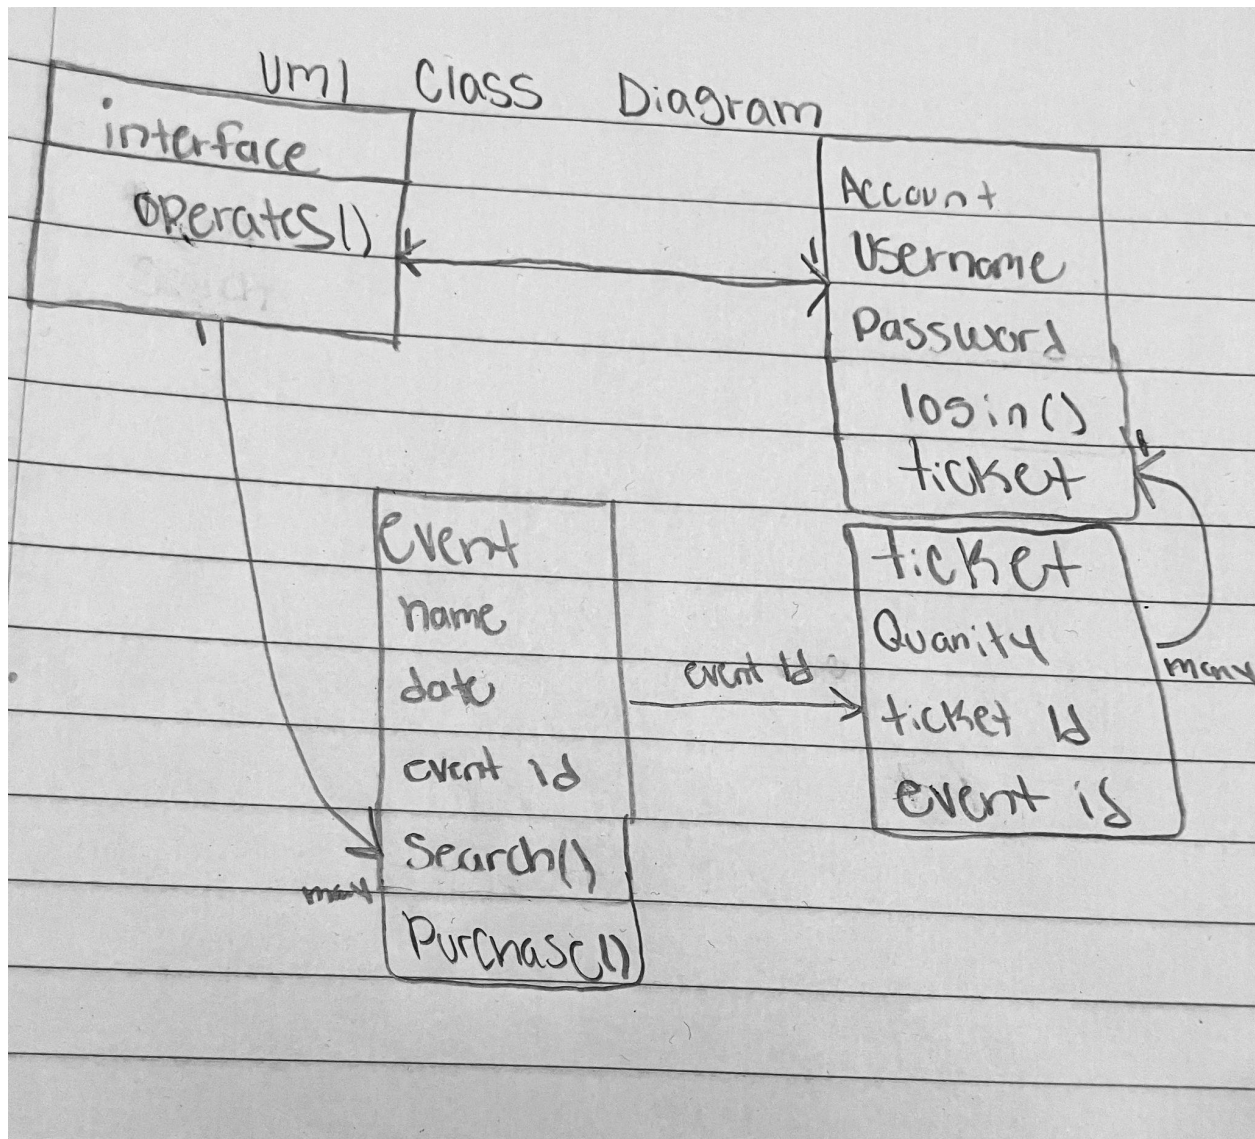 Uml Class Diagram
interface
operates()
Account
Username
Password
login()
ticket
event
name
date
event id
Search()
Purchase()
event Id
ticket
Quanity
ticket Id
event id
many
many